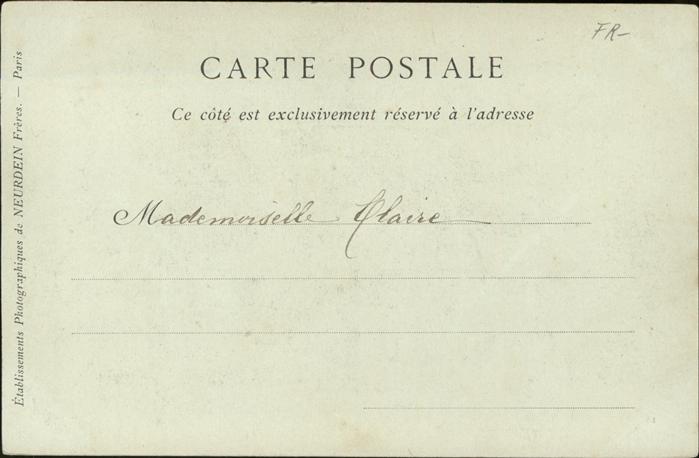 FR-
CARTE POSTALE
Ce côté est exclusivement réservé à l'adresse
Mademoiselle Claire
Établissements Photographiques de NEURDEIN Frères. — Paris